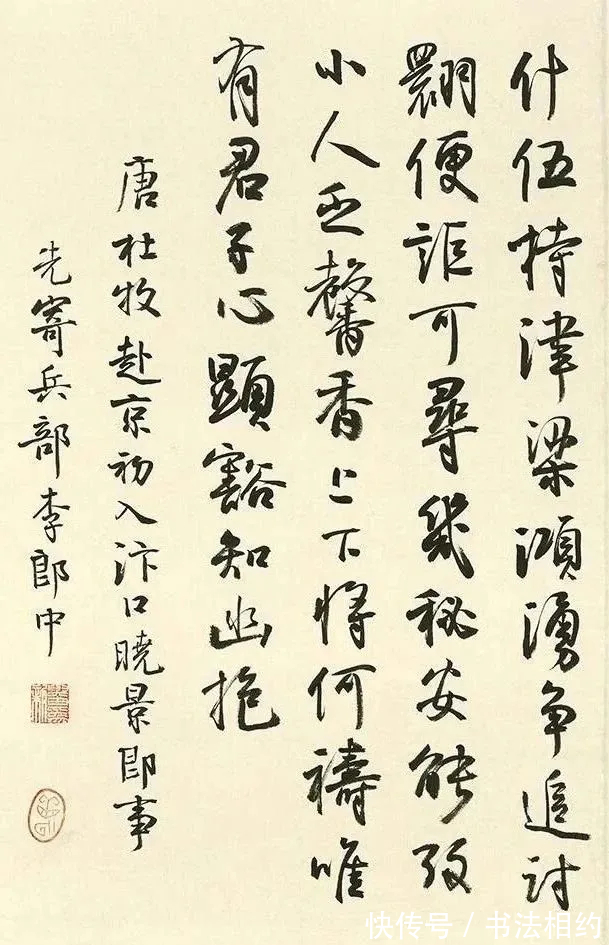 什伍持津梁澒湧争追討
翾便詎可尋幾秘安能攷
小人乏馨香上下将何禱唯
有君子心顯豁知幽抱
唐杜牧赴京初入汴口曉景即事
先寄兵部李郎中
快传号 / 书法相约